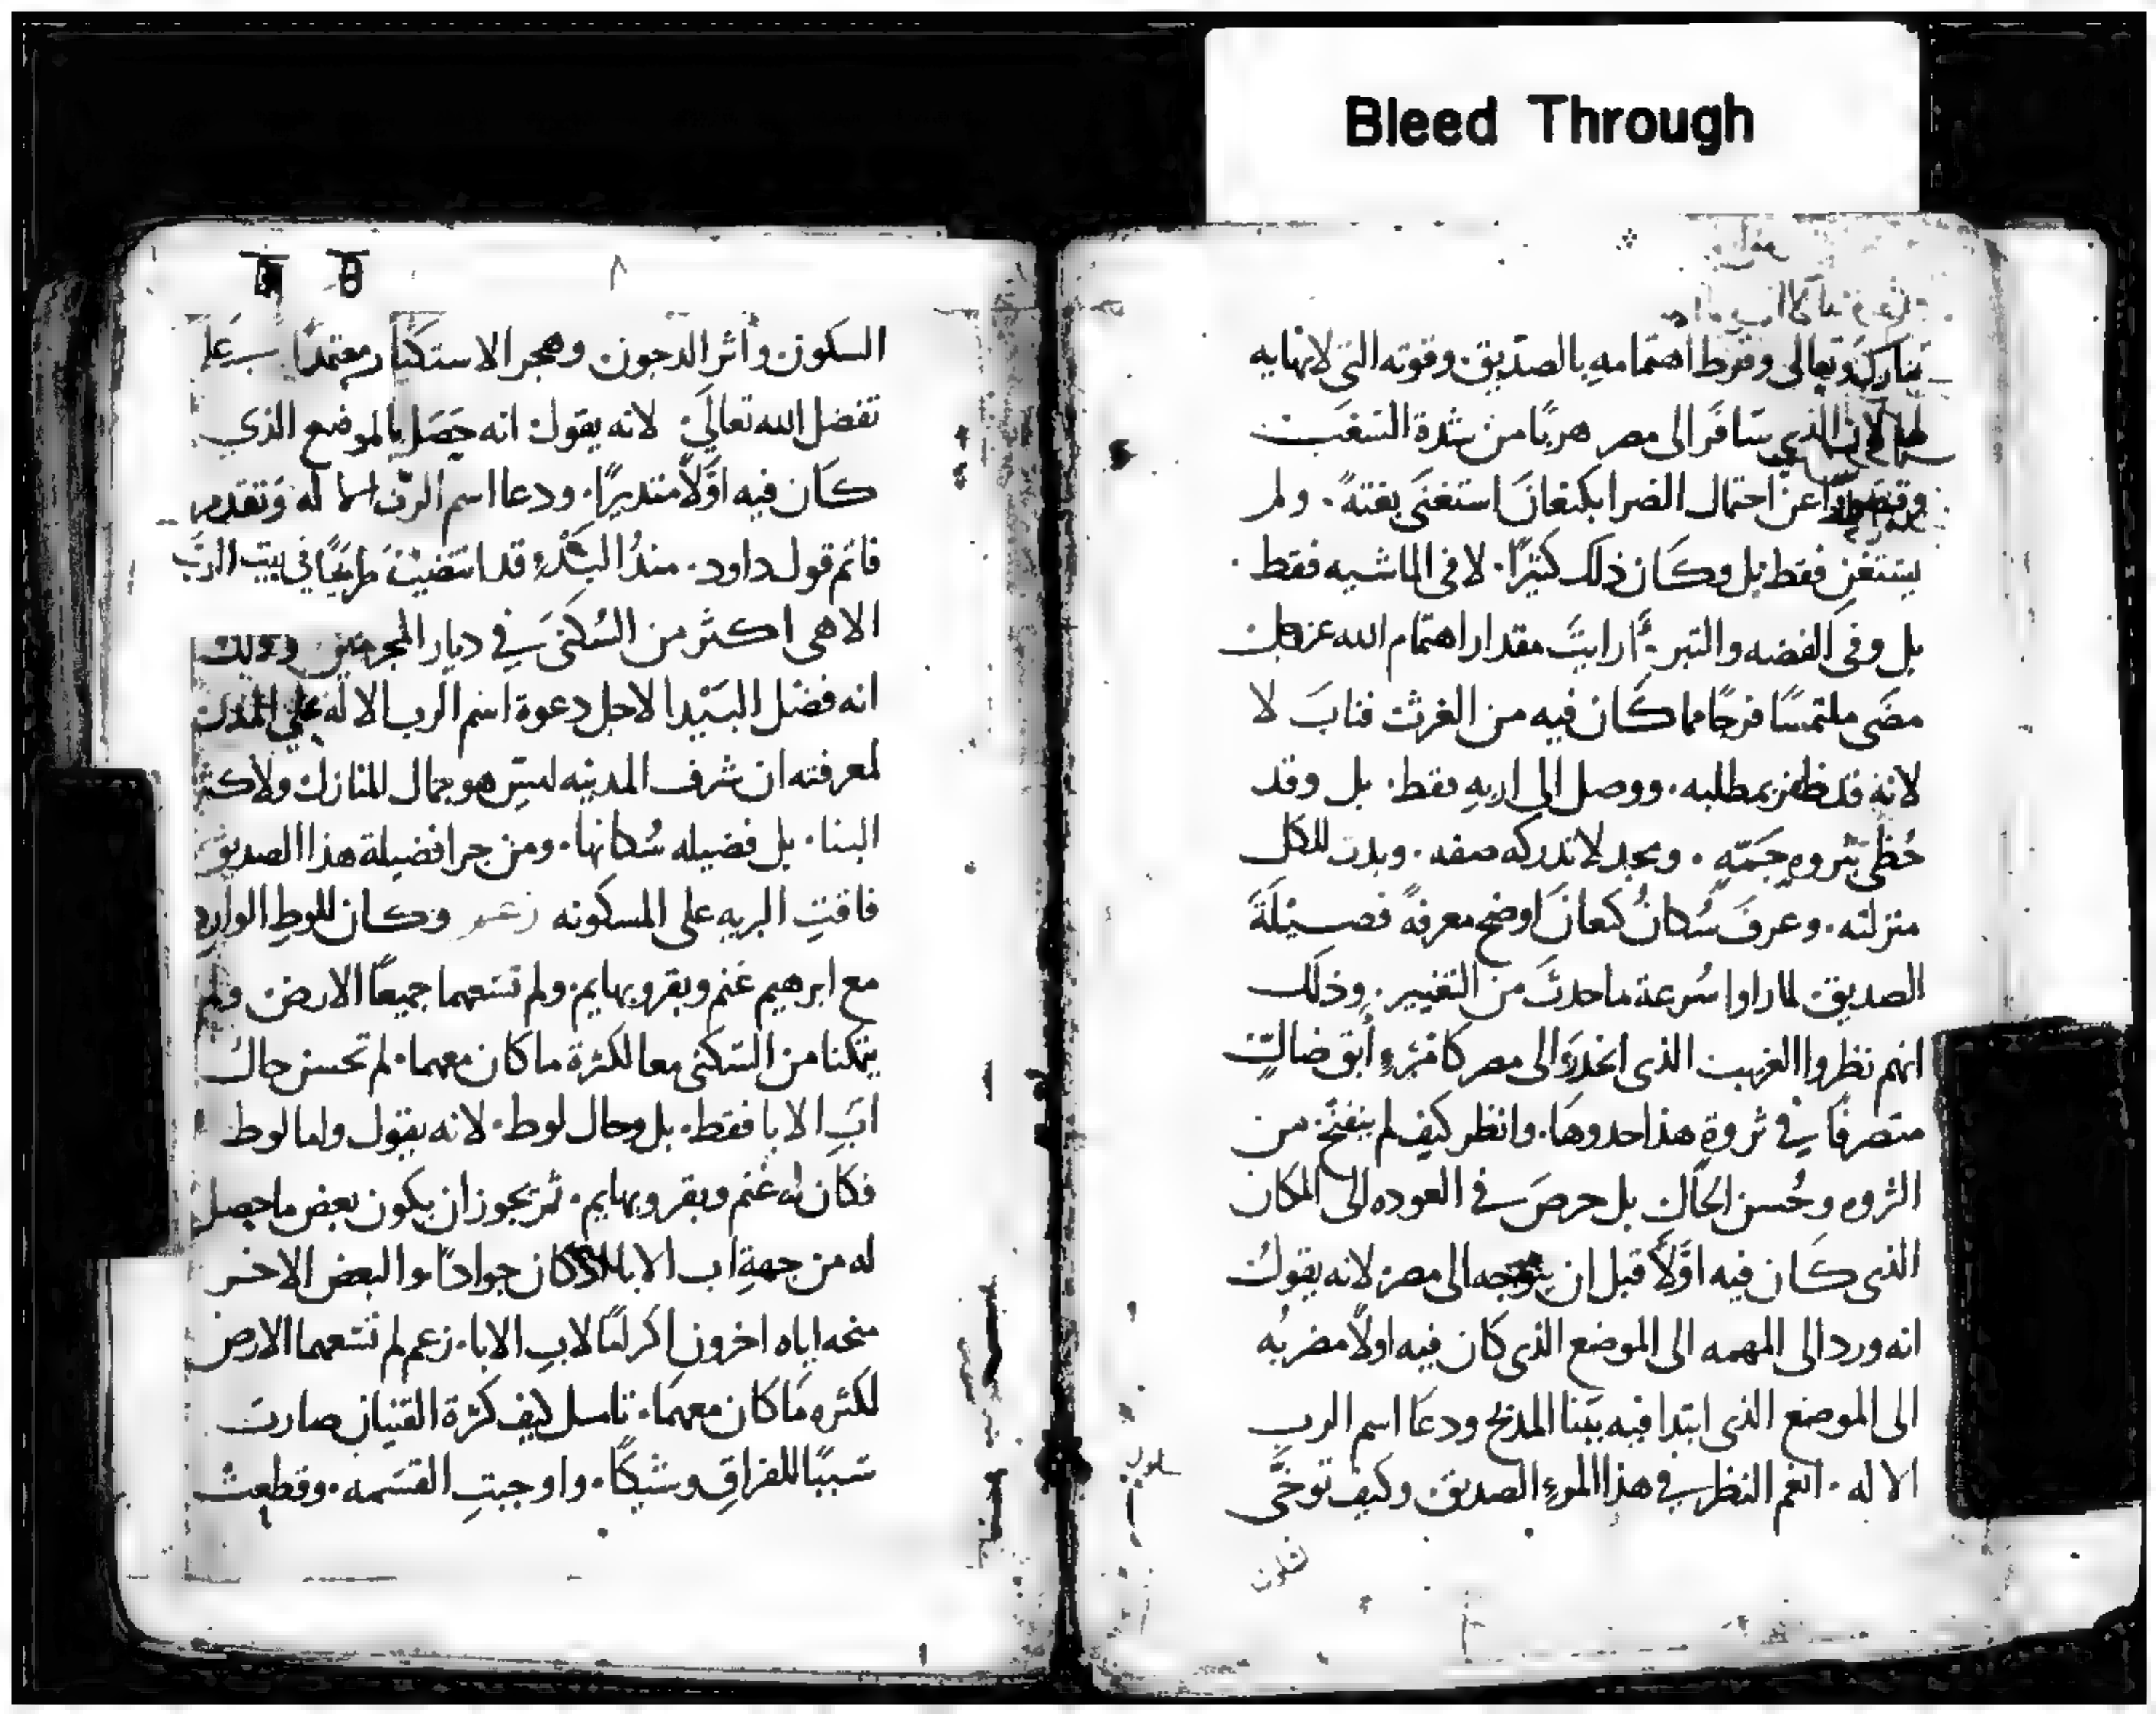 Bleed Through
تبارك وتعالى وفرط اهتمامه بالصديق وقوته التى لانهايه
الذي سافر الى مصر هربًا من شدة السغب
عن احتمال الضرا بكنعان استغنى بغتةً . ولم
يستغن فقط بل وكان ذلك كثيرًا . لا فى الماشيه فقط .
بل وفى الفضه والتبر . أرايت مقدار اهتمام الله عز وجل
مضى ملتمسًا فرجًا مما كان فيه من الغرث فناب لا
لانه قد ظفر بمطلبه . ووصل الى اربه فقط . بل وقد
حُظى بثروه جمّه . ومجد لا تدركه صفه . وبدت للكل
منزلته . وعرف سُكانُ كنعان اوضح معرفةً فضيلة
الصديق . لما راوا سُرعة ما حدث من التغيير . وذلك
انهم نظروا الغريب الذى انحدر الى مصر كامرءٍ أبق ضالٍ
متصرفًا في ثروةٍ هذا حدوها . وانظر كيف لم ينفتح من
الثروه وحُسن الحال بل حرص في العوده الى المكان
الذى كان فيه اوّلاً قبل ان يتوجه الى مصر لانه يقول
انه ورد الى المهمه الى الموضع الذى كان فيه اولاً مضربُه
الى الموضع الذى ابتدا فيه ببنا المذبح ودعا اسم الرب
الاله . انعم النظر في هذا المرءِ الصديق وكيف توخَّى
السكون وأثر الدجون وهجر الاستكبار معتمدًا على
تفضل الله تعالى لانه يقول انه حصل بالموضع الذي
كان فيه اوّلاً متديرًا . ودعا اسم الرب الاله وتقدم
فاتم قول داود . منذُ البَدْءِ قد انتضيتُ طريحًا فى بيت الرب
الاهى اكثر من السُكنى في ديار المجرمين وذلك
انه فضّل البَيْدا لاجل دعوة اسم الرب الاله على المدن
لمعرفته ان شرف المدينه ليس هو جمال المنازل ولا كثر
البنا . بل فضيله سُكانها . ومن جرا فضيلة هذا الصديق
فاقت البريه على المسكونه زعم وكان للوط الوارد
مع ابرهيم غنم وبقر وبهايم . ولم تسعهما جميعًا الارض ولم
يتمكنا من السكنى معا لكثرة ما كان معهما . لم تحسن حال
اب الابا فقط . بل وحال لوط . لانه يقول واما لوط
فكان له غنم وبقر وبهايم . ثم يجوز ان يكون بعض ما حصل
له من جهة اب الابا كان جوادًا والبعض الاخر
منحه اياه اخرون اكرامًا لاب الابا . زعم لم تسعهما الارض
لكثره ما كان معهما . تامل كيف كثرة القنيان صارت
سببًا للفراق وشبكًا . واوجبت القسمه . وقطعت